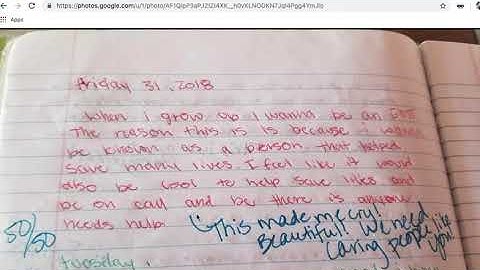 https://photos.google.com/u/1/photo/
Apps
friday 31, 2018
When i grow up I wanna be an
The reason this is is because I wanna
be known as a person that helped
save many lives. I feel like it would
also be cool to help save lifes and
be on call and be there is anyone
needs help.
50/50
This made me cry!
Beautiful! We need
caring people like
you!
tuesday,